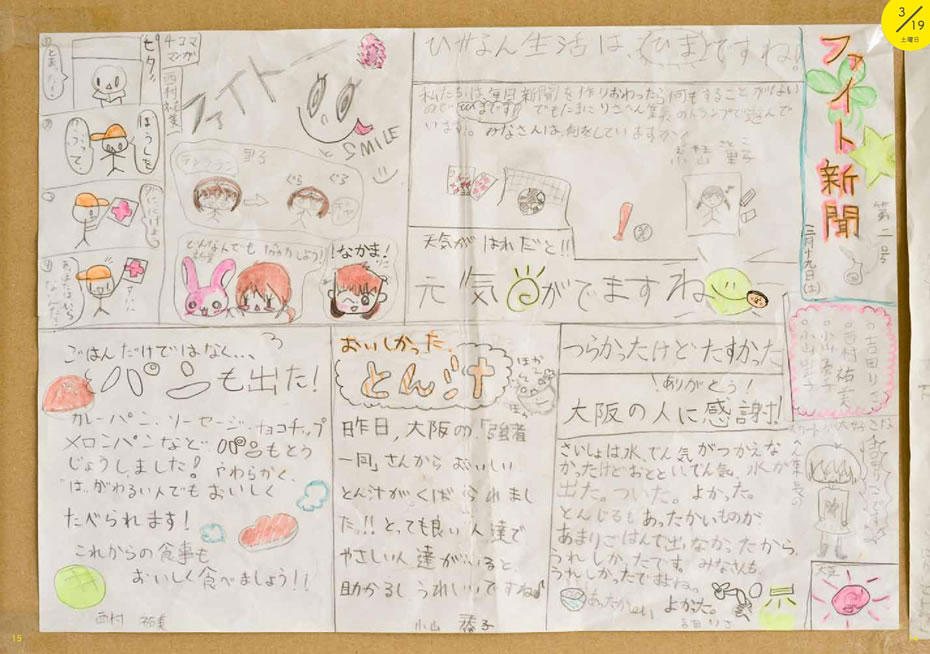 3/19
土曜日
ファイト新聞
第二号
三月十九日(土)
ひなん生活は、(ひま)ですね!
私たちは毎日新聞を作りおわったら何もすることがない
のでひまです。でもたまにりさへん集長のトランプで遊んで
います。みなさんは、何をしていますか?
小山 里子
天気がはれだと!!
元気がでますね
ファイトー
と
SMILE
4コマ
マンガ
西村祐美
ピタッ!
里子
ぐら ぐら
どんなんでもなかよしよう!
!なかま!
○吉田りさ
○西村祐美
○小山奏子
○小山里子
つらかったけどたすかった
ありがとう!
大阪の人に感謝!
さいしょは水、でん気がつかえな
かったけどおとといでん気、水が
出た。ついた。よかった。
とんじるもあったかいものが
あまりごはんで出なかったから、
うれしかったです。みなさんも、
うれしかったですよね。
あったか〜い よかった。
吉田りさ
おいしかった
とん汁
ほか
ほか
昨日、大阪の「強者
一同」さんからおいしい
とん汁がくばられまし
た!!とっても良い人達で
やさしい人達がいると、
助かるしうれしいですね♪
小山
ごはんだけではなく、、、
パンも出た!
カレーパン、ソーセージ、チョコチップ
メロンパンなどパンもとう
じょうしました!やわらかく、
"は"がわるい人でもおいしく
たべられます!
これからの食事も
おいしく食べましょう!!
西村 祐美
天気
15